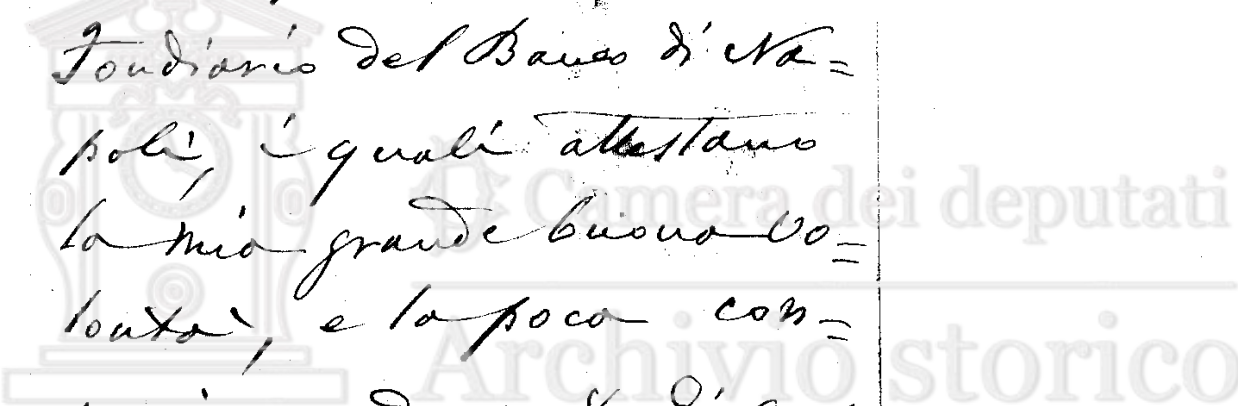 Fondiario del Banco di Na=
poli, i quali attestano
la mia grande buona vo=
lontà, e la poca con=
Camera dei deputati
Archivio storico